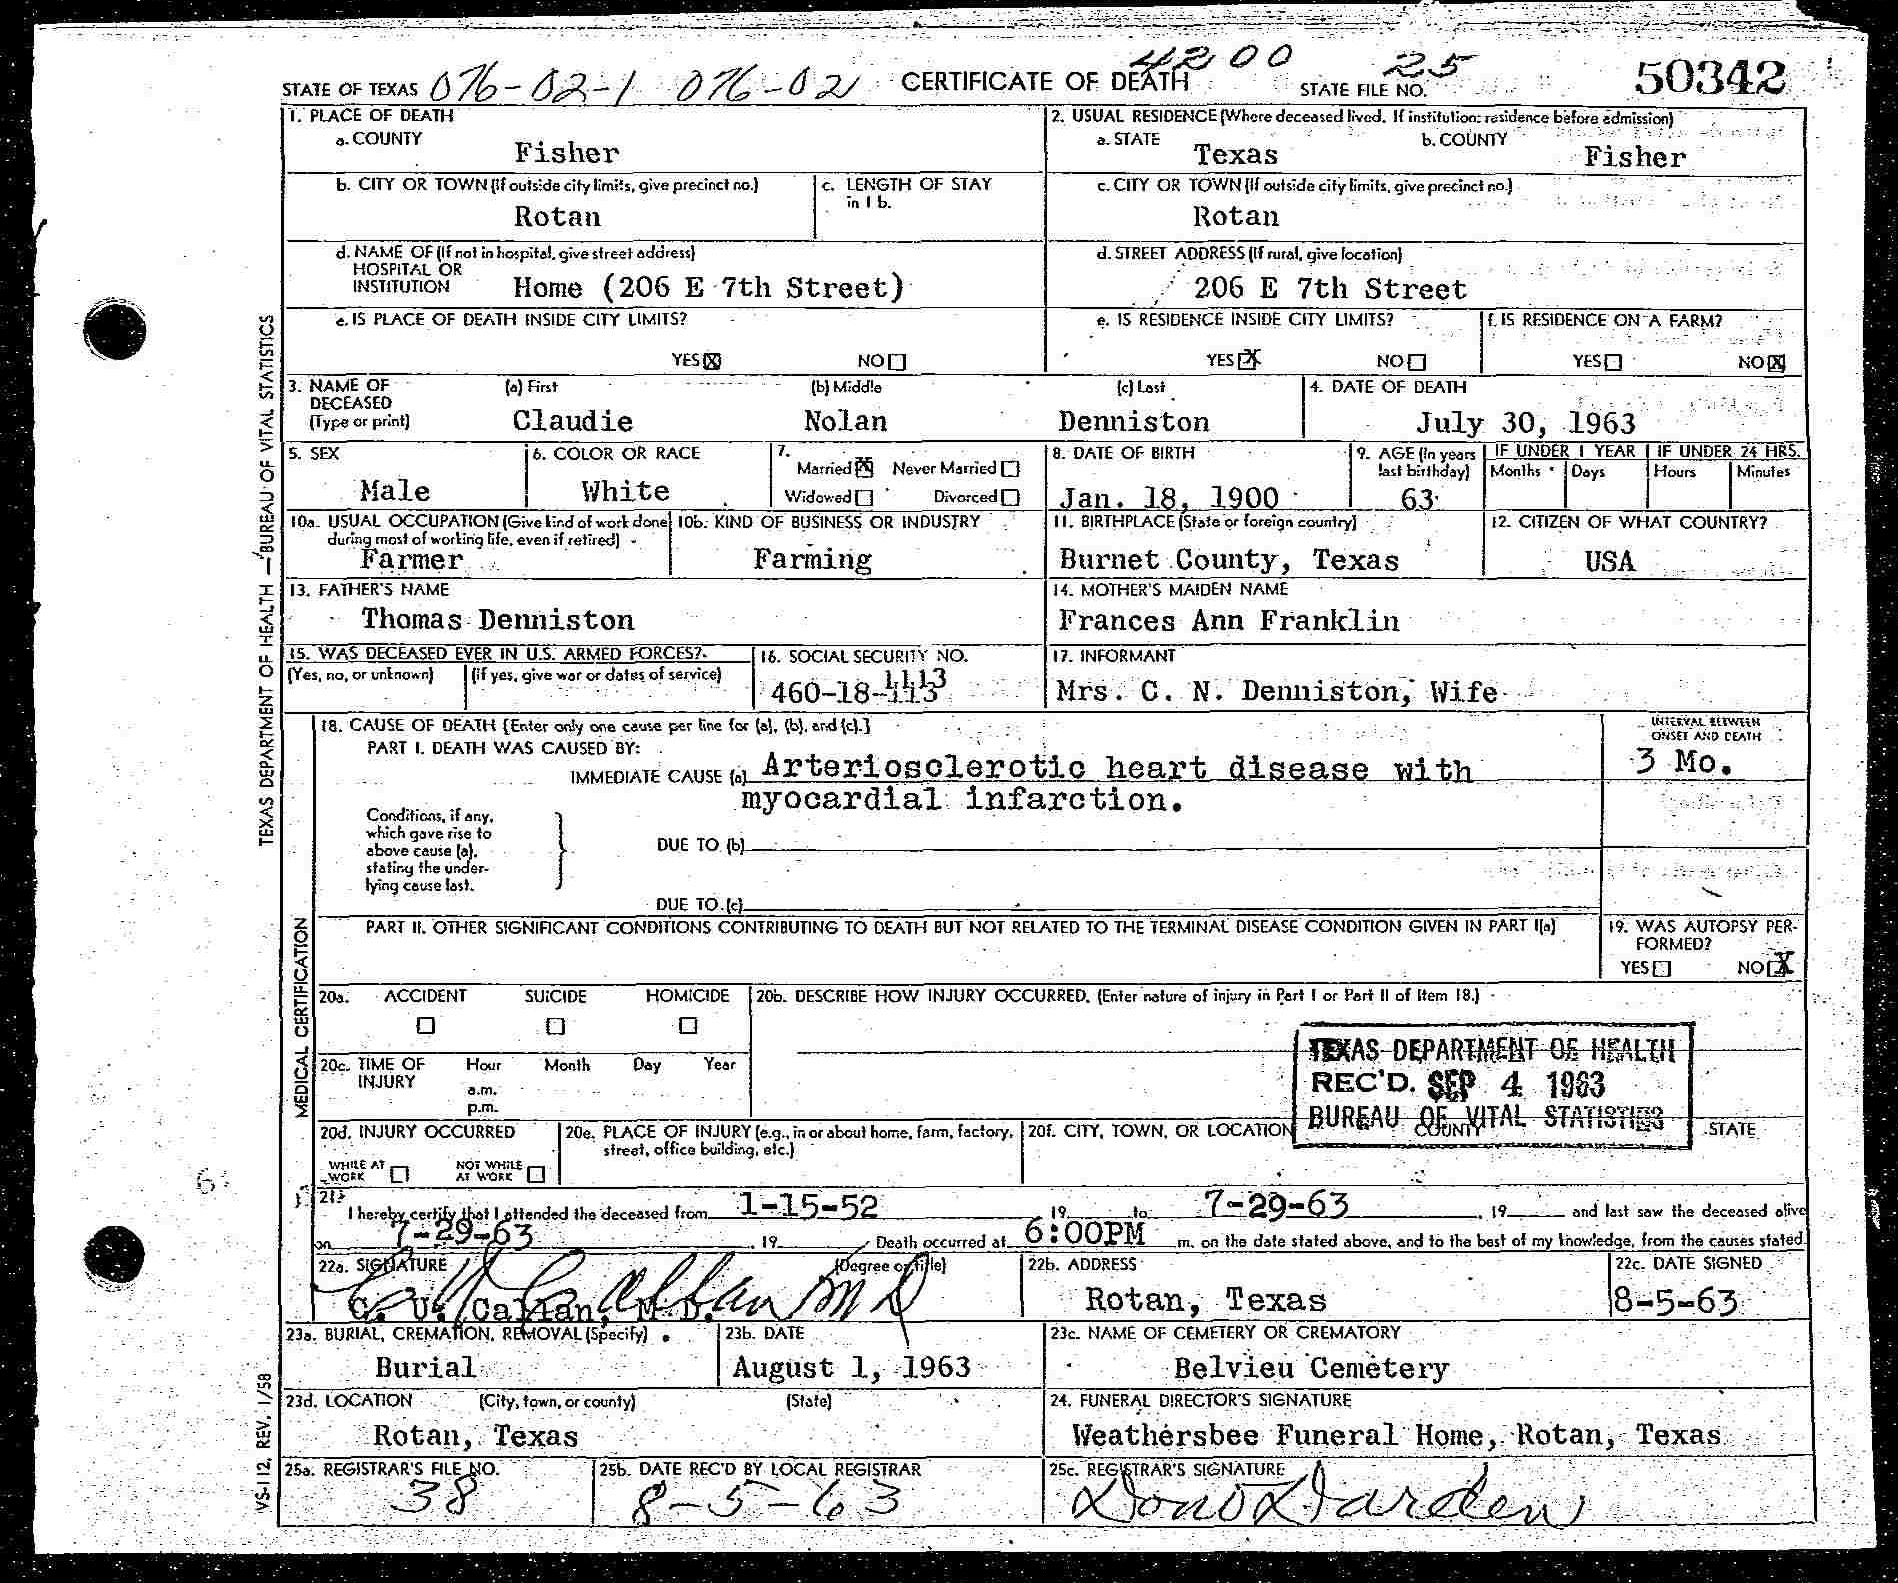 4200 25
STATE OF TEXAS 076-02-1 076-02 CERTIFICATE OF DEATH STATE FILE NO. 50342
1. PLACE OF DEATH
a. COUNTY
Fisher
2. USUAL RESIDENCE (Where deceased lived. If institution: residence before admission)
a. STATE b. COUNTY
Texas Fisher
b. CITY OR TOWN (If outside city limits, give precinct no.) c. LENGTH OF STAY
in 1 b.
Rotan
c. CITY OR TOWN (If outside city limits, give precinct no.)
Rotan
d. NAME OF (If not in hospital, give street address)
HOSPITAL OR
INSTITUTION Home (206 E 7th Street)
d. STREET ADDRESS (If rural, give location)
206 E 7th Street
e. IS PLACE OF DEATH INSIDE CITY LIMITS?
YES X NO
e. IS RESIDENCE INSIDE CITY LIMITS? f. IS RESIDENCE ON A FARM?
YES X NO YES NO X
3. NAME OF (a) First (b) Middle (c) Last 4. DATE OF DEATH
DECEASED
(Type or print) Claudie Nolan Denniston July 30, 1963
5. SEX 6. COLOR OR RACE 7. 8. DATE OF BIRTH 9. AGE (In years IF UNDER 1 YEAR IF UNDER 24 HRS.
Married X Never Married last birthday) Months Days Hours Minutes
Male White Widowed Divorced Jan. 18, 1900 63
10a. USUAL OCCUPATION (Give kind of work done 10b. KIND OF BUSINESS OR INDUSTRY 11. BIRTHPLACE (State or foreign country) 12. CITIZEN OF WHAT COUNTRY?
during most of working life, even if retired)
Farmer Farming Burnet County, Texas USA
13. FATHER'S NAME 14. MOTHER'S MAIDEN NAME
Thomas Denniston Frances Ann Franklin
15. WAS DECEASED EVER IN U.S. ARMED FORCES? 16. SOCIAL SECURITY NO. 17. INFORMANT
(Yes, no, or unknown) (If yes, give war or dates of service) 460-18-1113 Mrs. C. N. Denniston, Wife
18. CAUSE OF DEATH [Enter only one cause per line for (a), (b), and (c).] INTERVAL BETWEEN
ONSET AND DEATH
PART I. DEATH WAS CAUSED BY:
IMMEDIATE CAUSE (a) Arteriosclerotic heart disease with 3 Mo.
myocardial infarction.
Conditions, if any,
which gave rise to
above cause (a),
stating the under-
lying cause last.
DUE TO (b)
DUE TO (c)
PART II. OTHER SIGNIFICANT CONDITIONS CONTRIBUTING TO DEATH BUT NOT RELATED TO THE TERMINAL DISEASE CONDITION GIVEN IN PART I(a) 19. WAS AUTOPSY PER-
FORMED?
YES NO X
20a. ACCIDENT SUICIDE HOMICIDE 20b. DESCRIBE HOW INJURY OCCURRED. (Enter nature of injury in Part I or Part II of Item 18.)
20c. TIME OF Hour Month Day Year
INJURY a.m.
p.m.
TEXAS DEPARTMENT OF HEALTH
REC'D. SEP 4 1963
BUREAU OF VITAL STATISTICS
20d. INJURY OCCURRED 20e. PLACE OF INJURY (e.g., in or about home, farm, factory, 20f. CITY, TOWN, OR LOCATION COUNTY STATE
street, office building, etc.)
WHILE AT NOT WHILE
WORK AT WORK
21.
I hereby certify that I attended the deceased from 1-15-52 19 to 7-29-63, 19 and last saw the deceased alive
on 7-29-63, 19 Death occurred at 6:00PM m. on the date stated above, and to the best of my knowledge, from the causes stated.
22a. SIGNATURE (Degree or title) 22b. ADDRESS 22c. DATE SIGNED
C. U. Callan, M.D. Callan MD Rotan, Texas 8-5-63
23a. BURIAL, CREMATION, REMOVAL (Specify) 23b. DATE 23c. NAME OF CEMETERY OR CREMATORY
Burial August 1, 1963 Belvieu Cemetery
23d. LOCATION (City, town, or county) (State) 24. FUNERAL DIRECTOR'S SIGNATURE
Rotan, Texas Weathersbee Funeral Home, Rotan, Texas
25a. REGISTRAR'S FILE NO. 25b. DATE REC'D BY LOCAL REGISTRAR 25c. REGISTRAR'S SIGNATURE
38 8-5-63 Darden
TEXAS DEPARTMENT OF HEALTH — BUREAU OF VITAL STATISTICS
MEDICAL CERTIFICATION
VS-112, REV. 1/58